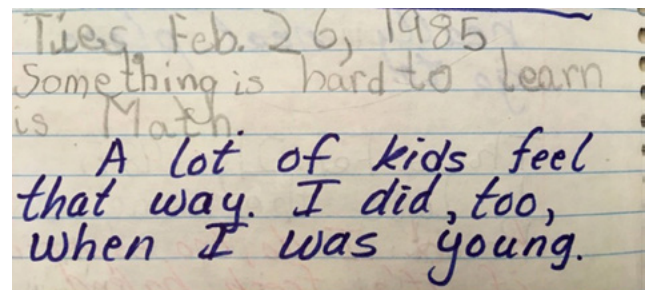 Tues, Feb. 26, 1985
Something is hard to learn
is Math.
A lot of kids feel
that way. I did, too,
when I was young.